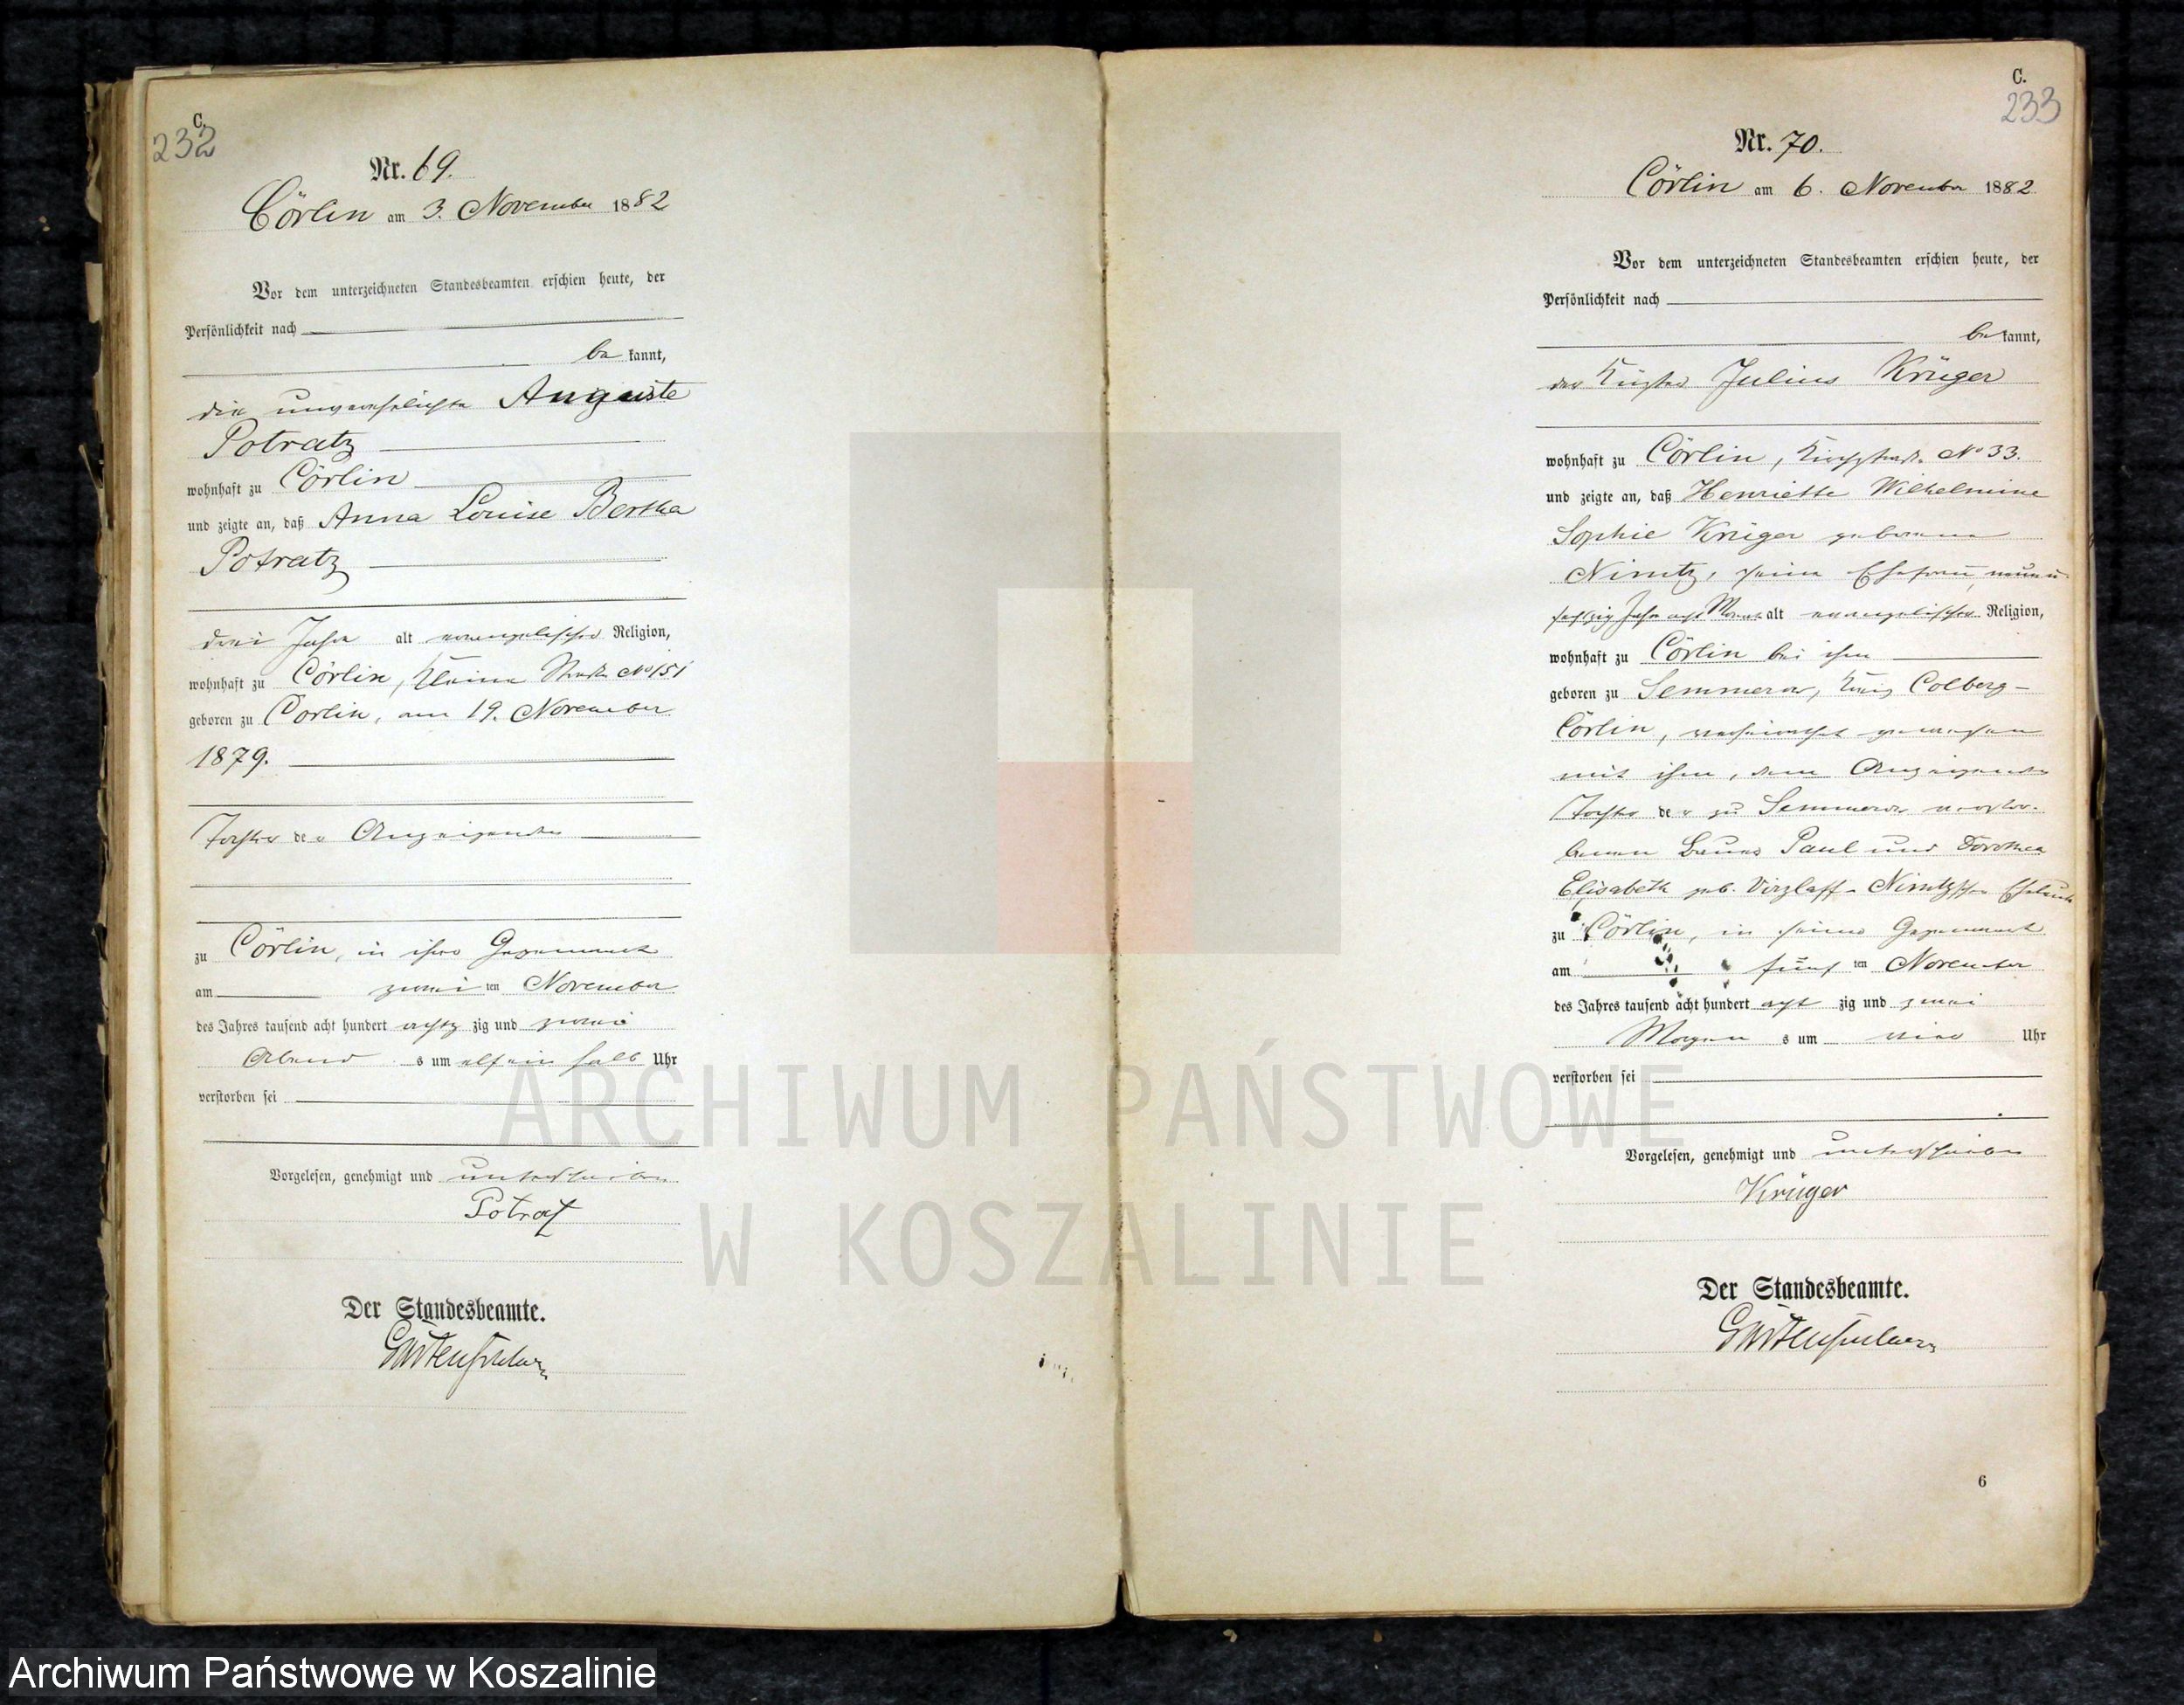 C.
232
Nr. 69.
Cörlin am 3. November 1882
Vor dem unterzeichneten Standesbeamten erschien heute, der
Persönlichkeit nach
bekannt,
die unverehelichte Auguste
Potratz
wohnhaft zu Cörlin
und zeigte an, daß Anna Louise Bertha
Potratz
drei Jahre alt evangelischer Religion,
wohnhaft zu Cörlin, Kleine Straße No 151
geboren zu Cörlin, am 19. November
1879.
Tochter der Anzeigenden
zu Cörlin, in ihrer Gegenwart
am zweiten November
des Jahres tausend acht hundert achtzig und zwei
Abends um elf ein halb Uhr
verstorben sei
Vorgelesen, genehmigt und unterschrieben
Potratz
Der Standesbeamte.
C.
233
Nr. 70.
Cörlin am 6. November 1882
Vor dem unterzeichneten Standesbeamten erschien heute, der
Persönlichkeit nach
bekannt,
der Küster Julius Krüger
wohnhaft zu Cörlin, No 33.
und zeigte an, daß Henriette Wilhelmine
Sophie Krüger geborene
Nimtz, seine Ehefrau, neunu
sechzig Jahre acht Monat alt evangelischer Religion,
wohnhaft zu Cörlin bei ihm
geboren zu Semmerow, Kreis Colberg-
Cörlin, verheirathet gewesen
mit ihm, dem Anzeigenden
Tochter der zu Semmerow verstor-
benen Bauer Paul und Dorothea
Elisabeth geb. Virzlaff- Nimtzschen Eheleute
zu Cörlin, in seiner Gegenwart
am fünften November
des Jahres tausend acht hundert achtzig und zwei
Morgens um vier Uhr
verstorben sei
Vorgelesen, genehmigt und unterschrieben
Krüger
Der Standesbeamte.
6
ARCHIWUM PAŃSTWOWE
W KOSZALINIE
Archiwum Państwowe w Koszalinie